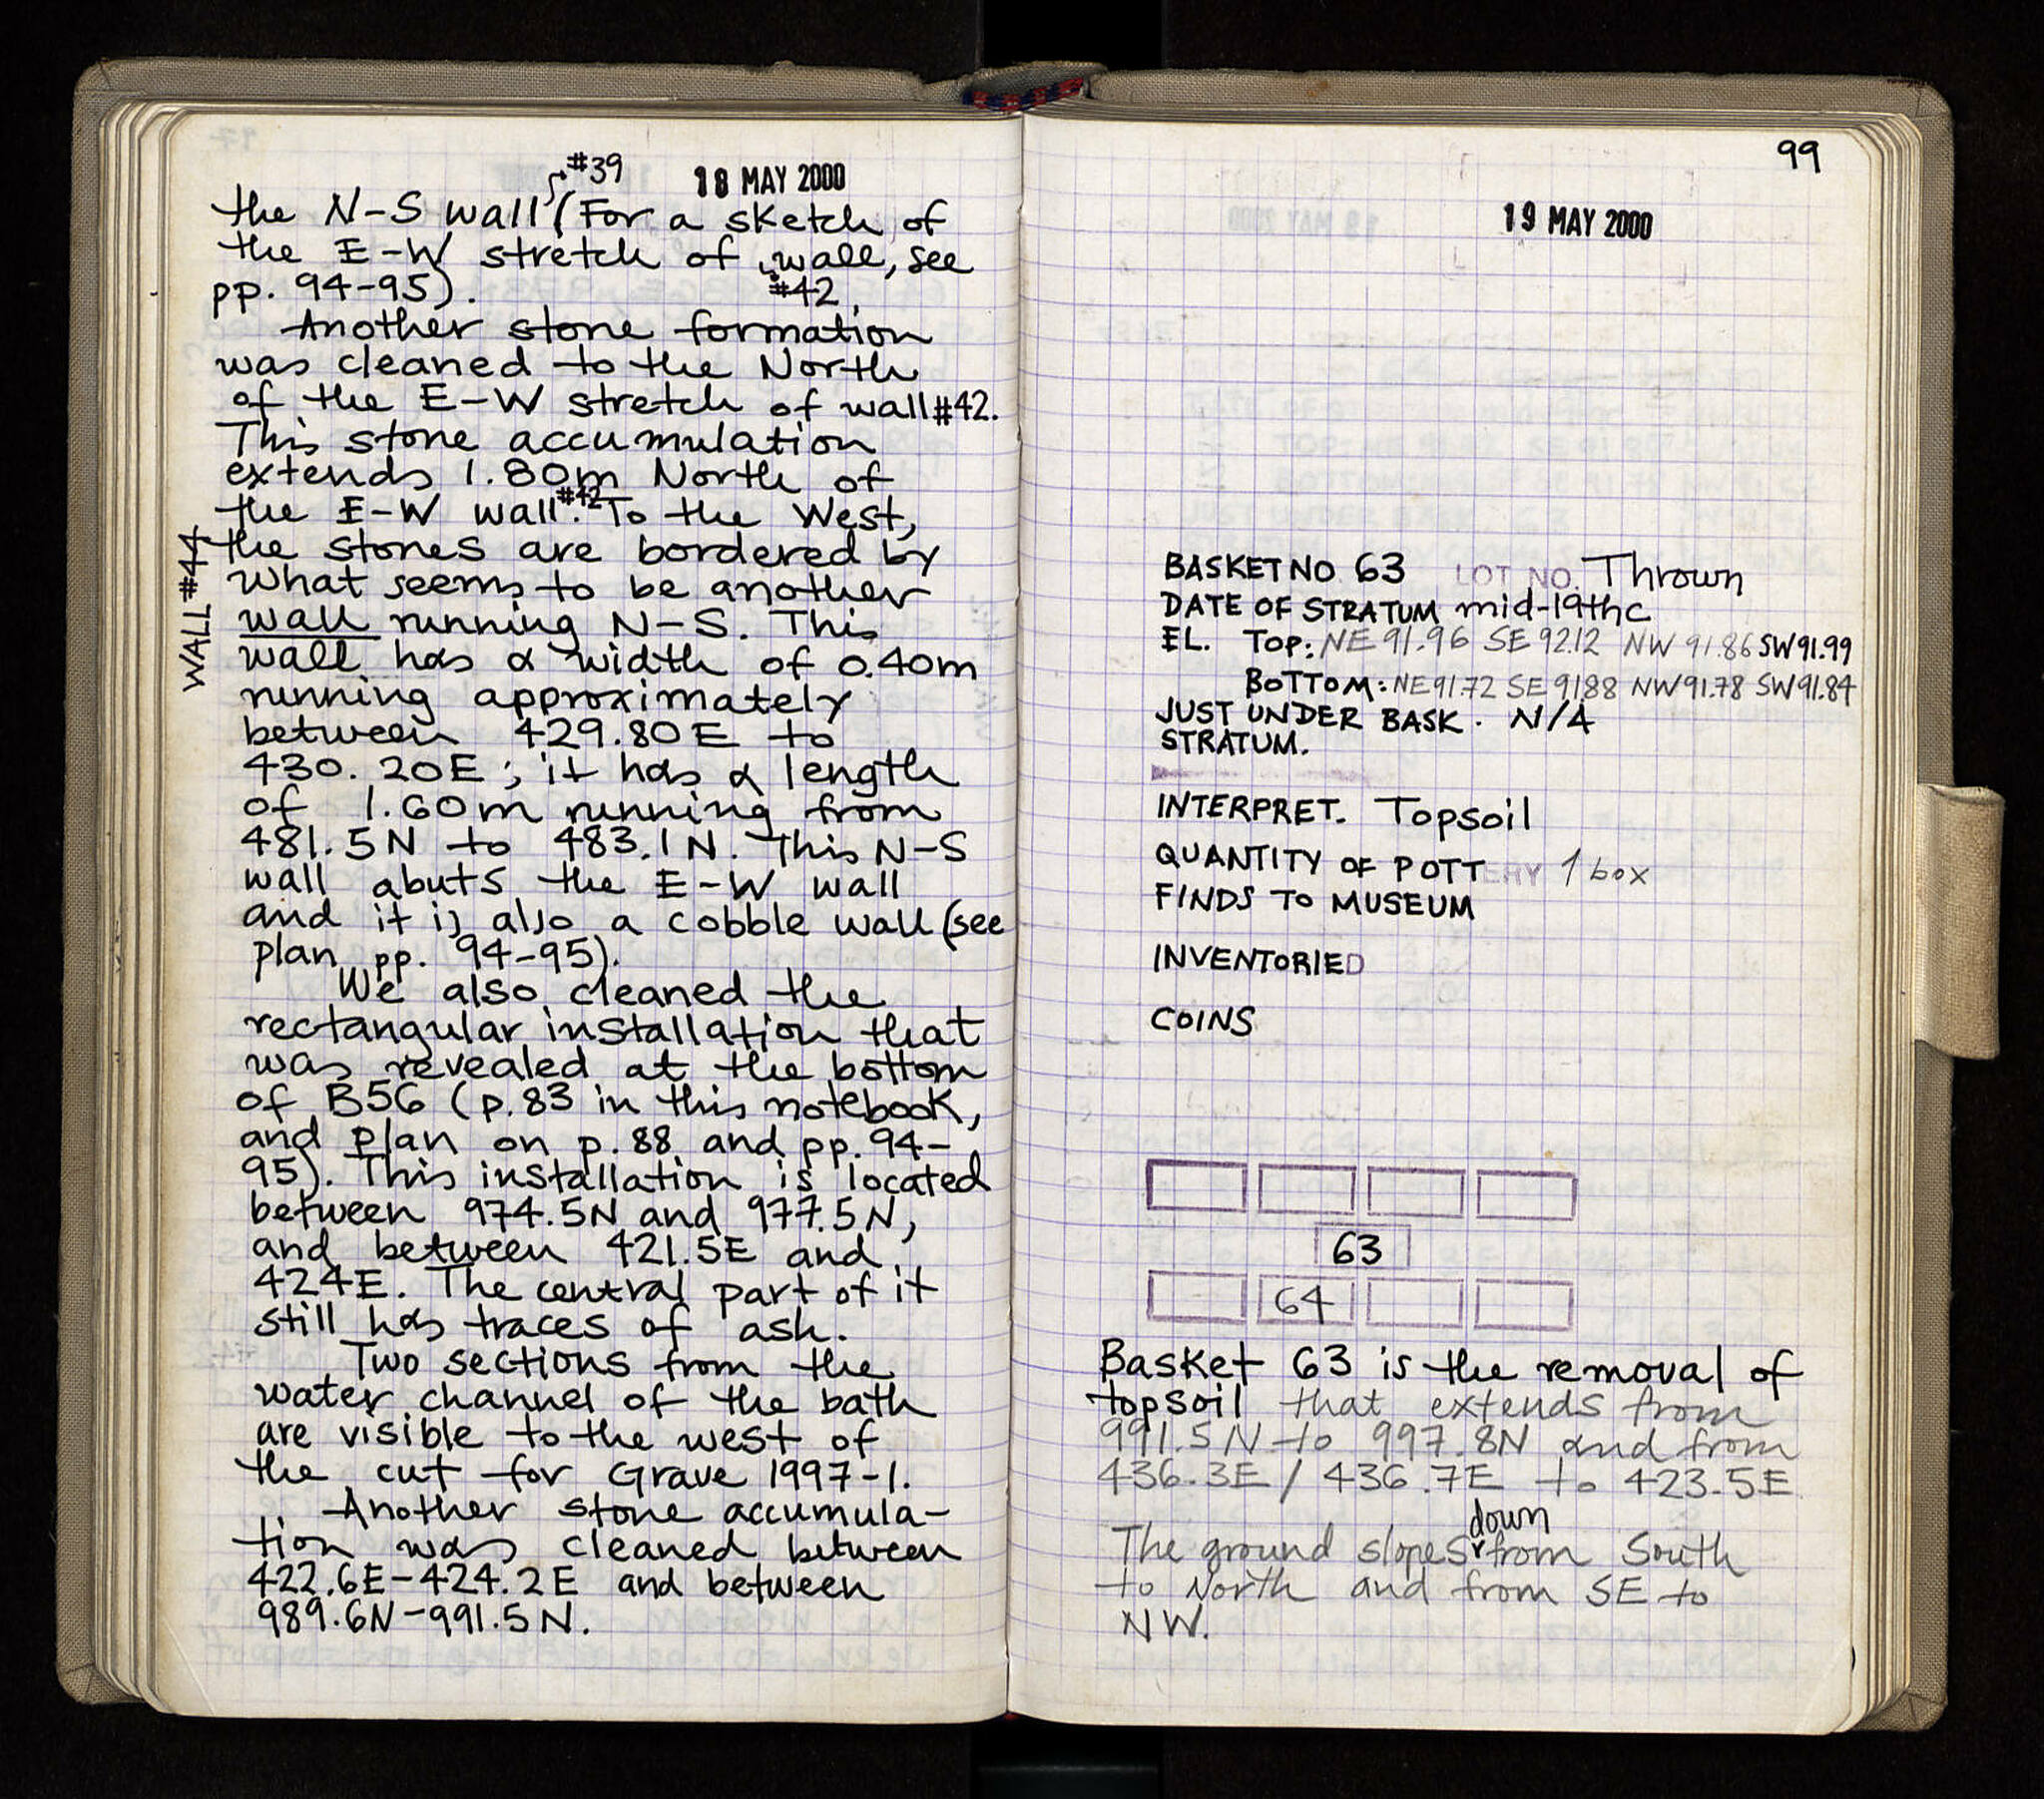 #39
18 MAY 2000
the N-S wall (For a sketch of
the E-W stretch of wall, see
#42
pp. 94-95).
Another stone formation
was cleaned to the North
of the E-W stretch of wall #42.
This stone accumulation
extends 1.80m North of
the E-W wall #42. To the West,
WALL #44
the stones are bordered by
what seems to be another
wall running N-S. This
wall has a width of 0.40m
running approximately
between 429.80E to
430.20E; it has a length
of 1.60m running from
481.5N to 483.1N. This N-S
wall abuts the E-W wall
and it is also a cobble wall (see
plan pp. 94-95).
We also cleaned the
rectangular installation that
was revealed at the bottom
of B56 (p.83 in this notebook,
and plan on p.88 and pp. 94-
95). This installation is located
between 974.5N and 977.5N,
and between 421.5E and
424E. The central part of it
still has traces of ash.
Two sections from the
water channel of the bath
are visible to the west of
the cut for Grave 1997-1.
Another stone accumula-
tion was cleaned between
422.6E-424.2E and between
989.6N-991.5N.
99
19 MAY 2000
BASKET NO 63 LOT NO. Thrown
DATE OF STRATUM mid-19thc
EL. TOP: NE 91.96 SE 92.12 NW 91.86 SW 91.99
BOTTOM: NE 91.72 SE 9188 NW 91.78 SW 91.84
JUST UNDER BASK. N/A
STRATUM.
INTERPRET. Topsoil
QUANTITY OF POTTERY 1 box
FINDS TO MUSEUM
INVENTORIED
COINS
63
64
Basket 63 is the removal of
topsoil that extends from
991.5N to 997.8N and from
436.3E / 436.7E to 423.5E
down
The ground slopes from South
to North and from SE to
NW.